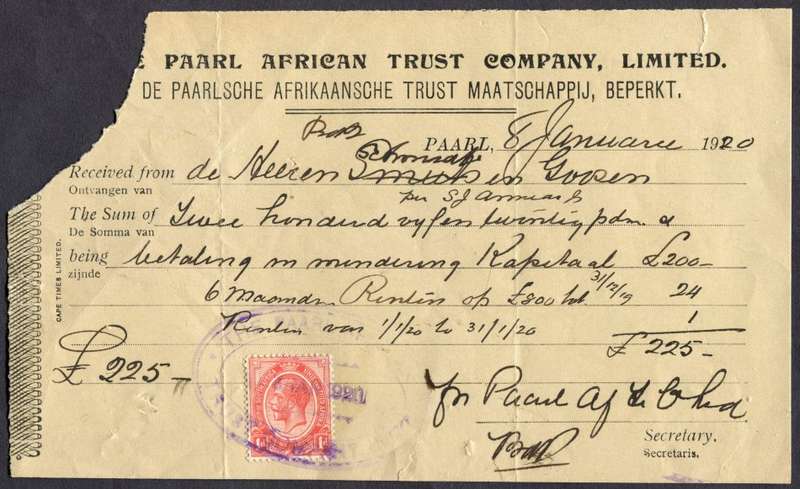 E PAARL AFRICAN TRUST COMPANY, LIMITED.
DE PAARLSCHE AFRIKAANSCHE TRUST MAATSCHAPPIJ, BEPERKT.
PAARL, 8 Januarie 1920
Received from de Heeren en Goosen
Ontvangen van
per S J
The Sum of Twee honderd vyf en twintig pdn a
De Somma van
being betaling in mindering Kapitaal £200-
zijnde
6 Maandn Renten op £800 tot 31/12/19 24
Renten van 1/1/20 to 31/1/20 1
£ 225-
£ 225-
1920
pn Paarl Af Tr C Ltd
Secretary.
Secretaris.
CAPE TIMES LIMITED.